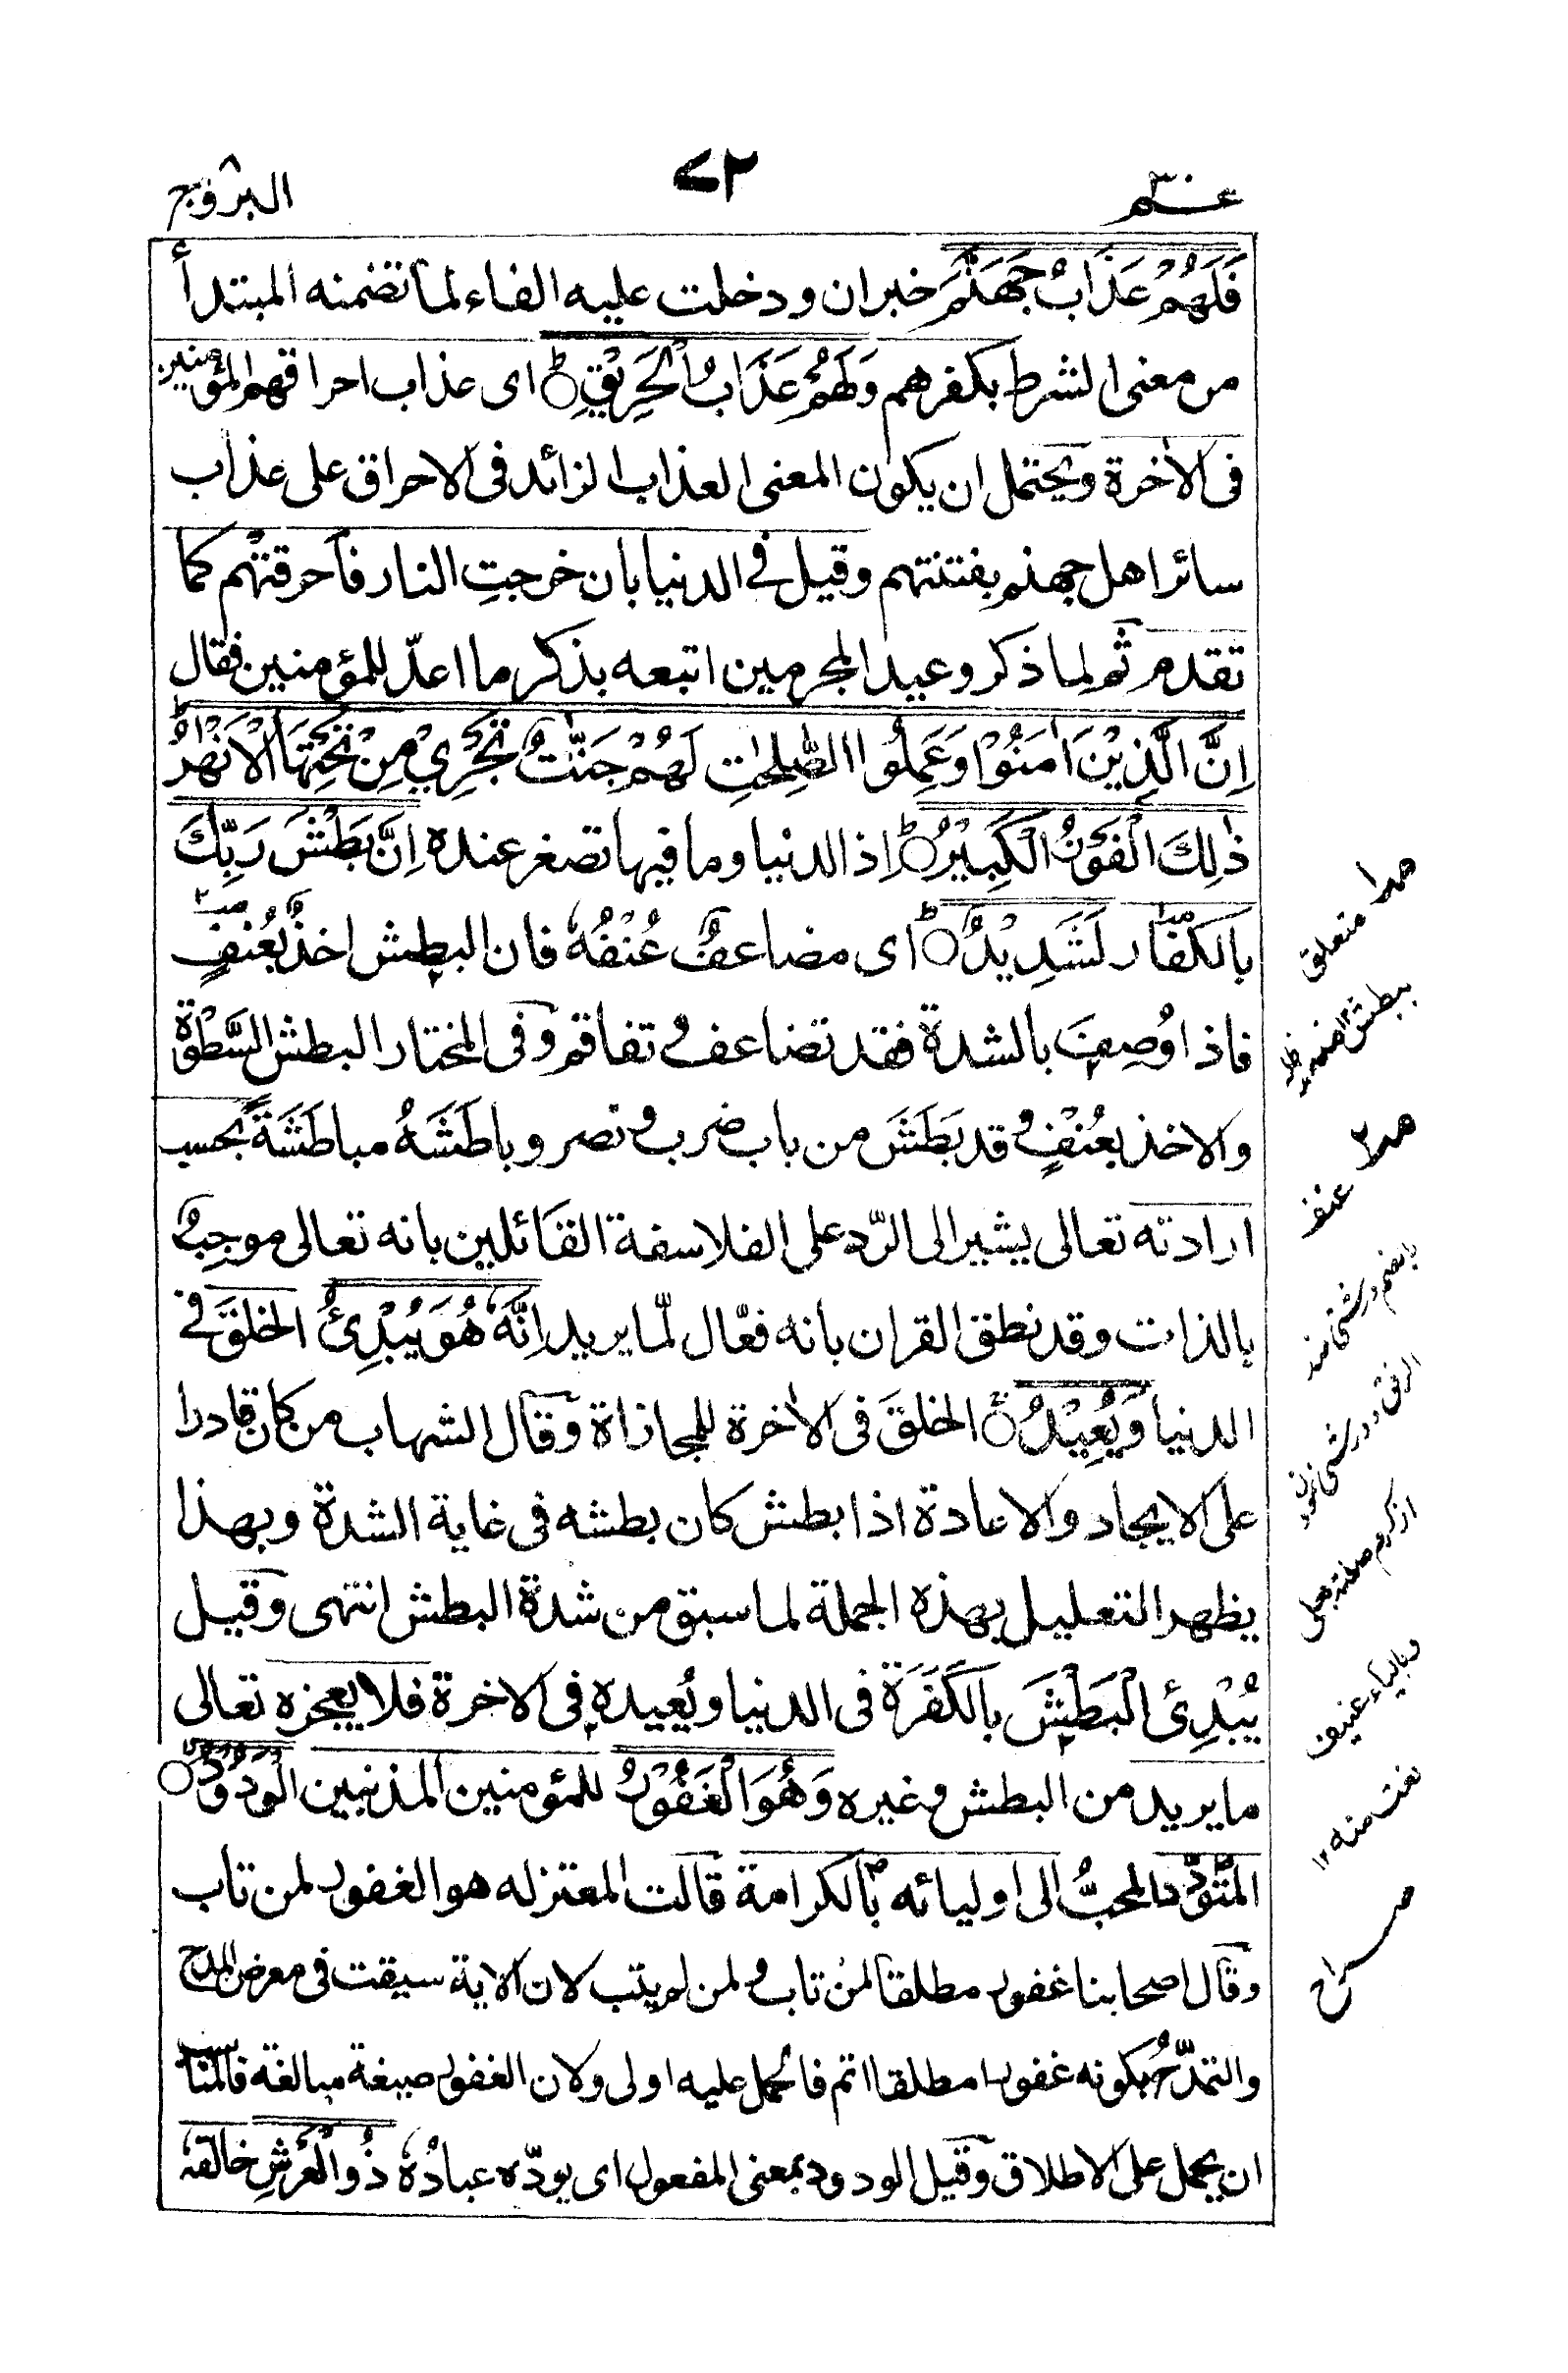 عــم ٣٠
٧٢
البروج
فَلَهُمْ عَذَابُ جَهَنَّمَ خبر ان ودخلت عليه الفاء لما تضمنه المبتدأ
من معنى الشرط بكفرهم وَلَهُمْ عَذَابُ الْحَرِيْقِ ای عذاب احراقهم المؤمنين
فى الاٰخرة ويحتمل ان يكون المعنى العذاب الزائد فى الاحراق على عذاب
سائر اهل جهنم بفتنتهم وقيل فے الدنيا بان خرجتِ النار فاَحرقتْهم كما
تقدم ثم لِما ذكر وعيد المجرمين اتبعه بذكر ما اعدّ للمؤمنين فقال
اِنَّ الَّذِيْنَ اٰمَنُوْا وَعَمِلُوا الصّٰلِحٰتِ لَهُمْ جَنّٰتٌ تَجْرِيْ مِنْ تَحْتِهَا الْاَنْهٰرُ
ذٰلِكَ الْفَوْزُ الْكَبِيْرُ اِذ الدنيا وما فيها تصغر عنده اِنَّ بَطْشَ رَبِّكَ
بالكفّار لَشَدِيْدٌ ای مضاعفٌ عُنْفُهٗ فان البطش اخذٌ بعُنفٍ
فاذا وُصِفَ بالشدة فقد تضاعف و تفاقم وفى المختار البطش السَّطْوَة
والاخذ بعُنْفٍ و قد بَطَشَ من باب ضرب و نصر و باطَشَهُ مباطَشَةً بحسب
ارادته تعالى يشير الى الرّد على الفلاسفة القائلين بانه تعالى موجِبٌ
بالذات وقد نطق القران بانه فعّال لّما يريد اِنَّهٗ هُوَ يُبْدِئُ الخلقَ فے
الدنيا وَيُعِيْدُ الخلقَ فى الاٰخرة للمجازاة وقال الشهاب من كان قادرا
على الايجاد والاعادة اذا بطش كان بطشه فى غاية الشدة وبهذا
يظهر التعليل بهذه الجملة لما سبق من شدة البطش انتهى وقيل
يُبْدِئ الْبَطْشَ بالكَفَرَة فى الدنيا ويُعيده فى الاخرة فلا يعجزه تعالى
ما يريد من البطش و غيره وَهُوَ الْغَفُوْرُ للمؤمنين المذنبين الْوَدُوْدُ
المُتَوَدِّد المحبُّ الى اوليائه بالكرامة قالت المعتزله هو الغفور لمن تاب
وقال اصحابنا غفور مطلقا لمن تاب و لمن لم يتب لان الاٰية سيقت فى معرض المدح
والتمدّح بكونه غفورا مطلقا اتم فالحمل عليه اولى ولان الغفور صيغة مبالغة فالمناسب
ان يحمل على الاطلاق وقيل الودود بمعنى المفعول ای يودّه عبادُهٗ ذُو الْعَرْشِ خالقهٗ
صـ١ متعلق
ببطش ١٢
صـ٢ عنف
بالضم درشتى ضد
الرفق
نعت منه ١٢
صراح